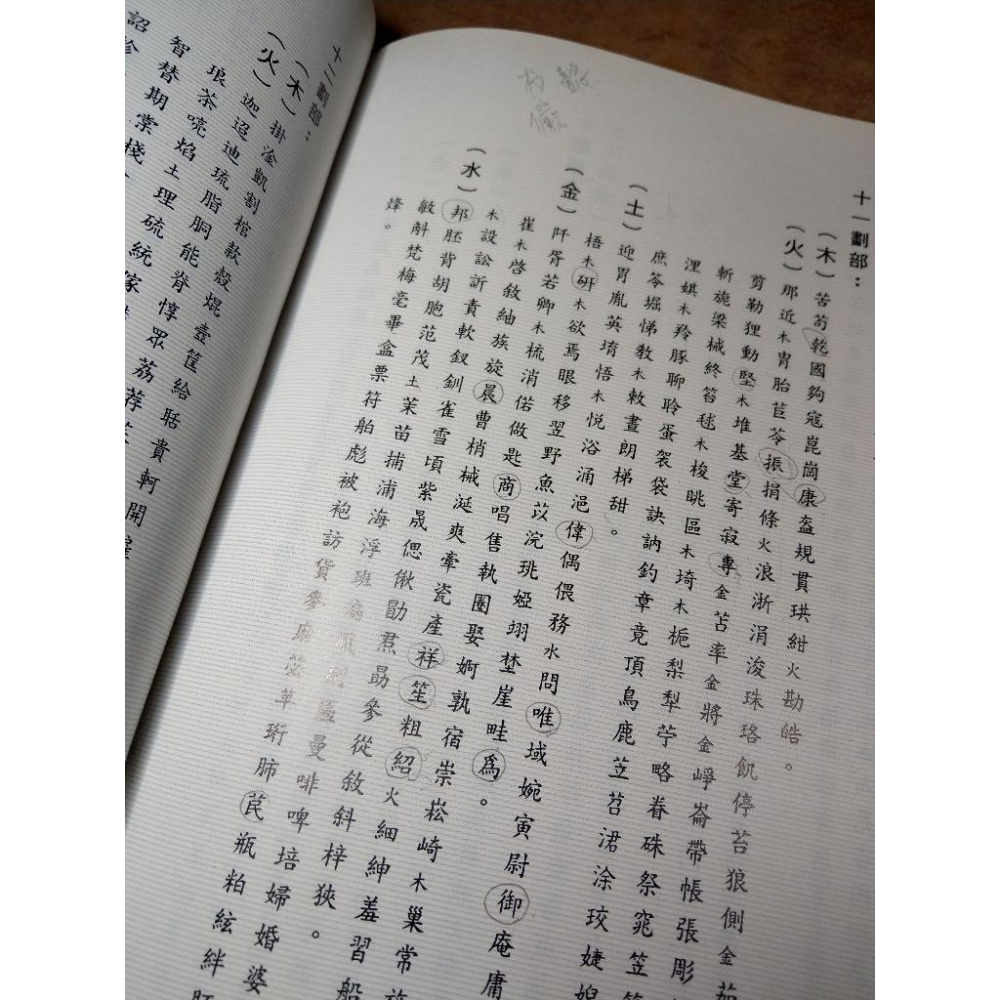 十一劃部：
（木）苦苟乾國夠寇崑崗康盔規貫珙紺火勘皓。
（火）那近木冑胎苣苓振捐條火浪浙涓浚珠珞飢停苔狼側金茄
剪勒狸動堅木堆基堂寄寂專金苫率金將金崢崙帶帳張彫
斬旎梁械終笤毬木梭眺區木埼木梔梨犁苧略眷硃祭窕笠
浬娸木羚豚聊聆蛋袈袋訣訥釣章竟頂鳥鹿笠苕涒涂珓婕婗
庶苓堀悌敎木敕晝朗梯甜。
（土）迎胃胤英堉悟木悅浴涌浥偉偶偎務水問唯域婉寅尉御庵庸
梧木研木欲焉眼移翌野魚苡浣珧婭翊埜崖畦為。
（金）阡胥若卿木梳消偌做匙商唱售執圈娶婀孰宿崇崧崎木巢常
崔木啓敘紬族旋晨曹梢械涎爽牽瓷產祥笙粗紹火細紳羞習船
木設訟訢責軟釵釧雀雪頃紫晟偲偢勖焄勗參從敘斜梓狹。
（水）邦胚背胡胞范茂土茉苗捕浦海浮班匾曼啡啤培婦婚婆
敏斛梵梅毫畢盒票符舶彪被袍訪貨麥麻苾苹珩肺苠瓶粕絃絆
烽。
十二劃部：
（木）掛淦凱割棺款殼焜壹筐給聒貴軻開
（火）迦迢迪琉脂胴能脊惇眾荔荐
琅茶喨焰土理硫統
智替期棠棧
詔診